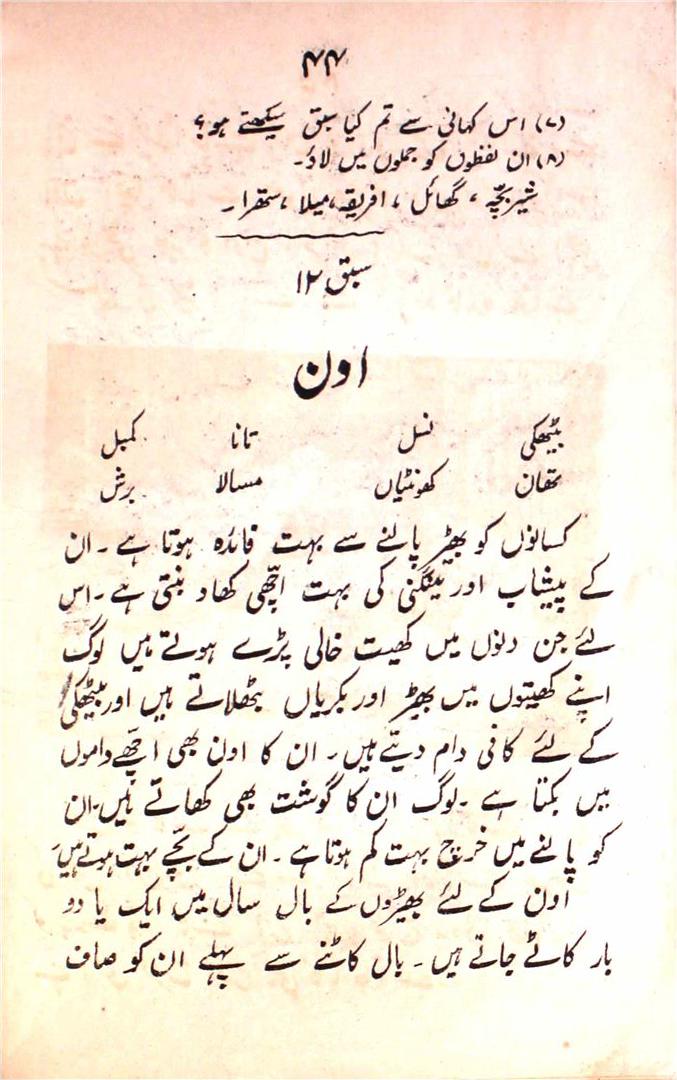 ۴۴
(۷) اس کہانی سے تم کیا سبق سیکھتے ہو؟
(۸) ان لفظوں کو جملوں میں لاؤ۔
شیر بچّہ ، گھائل ، افریقہ، میلا ، ستھرا ۔
سبق ۱۲
اون
بیٹھکی نسل تانا کمبل
تھان کھونٹیاں مسالا برش
کسانوں کو بھیڑ پالنے سے بہت فائدہ ہوتا ہے ۔ ان
کے پیشاب اور مینگنی کی بہت اچّھی کھاد بنتی ہے ۔ اس
لئے جن دنوں میں کھیت خالی پڑے ہوتے ہیں لوگ
اپنے کھیتوں میں بھیڑ اور بکریاں بٹھلاتے ہیں اور بیٹھکی
کے لئے کافی دام دیتے ہیں ۔ ان کا اون بھی اچّھے داموں
میں بکتا ہے ۔ لوگ ان کا گوشت بھی کھاتے ہیں۔ ان
کو پالنے میں خرچ بہت کم ہوتا ہے ۔ ان کے بچّے بہت ہوتے ہیں۔
اون کے لئے بھیڑوں کے بال سال میں ایک یا دو
بار کاٹے جاتے ہیں ۔ بال کاٹنے سے پہلے ان کو صاف